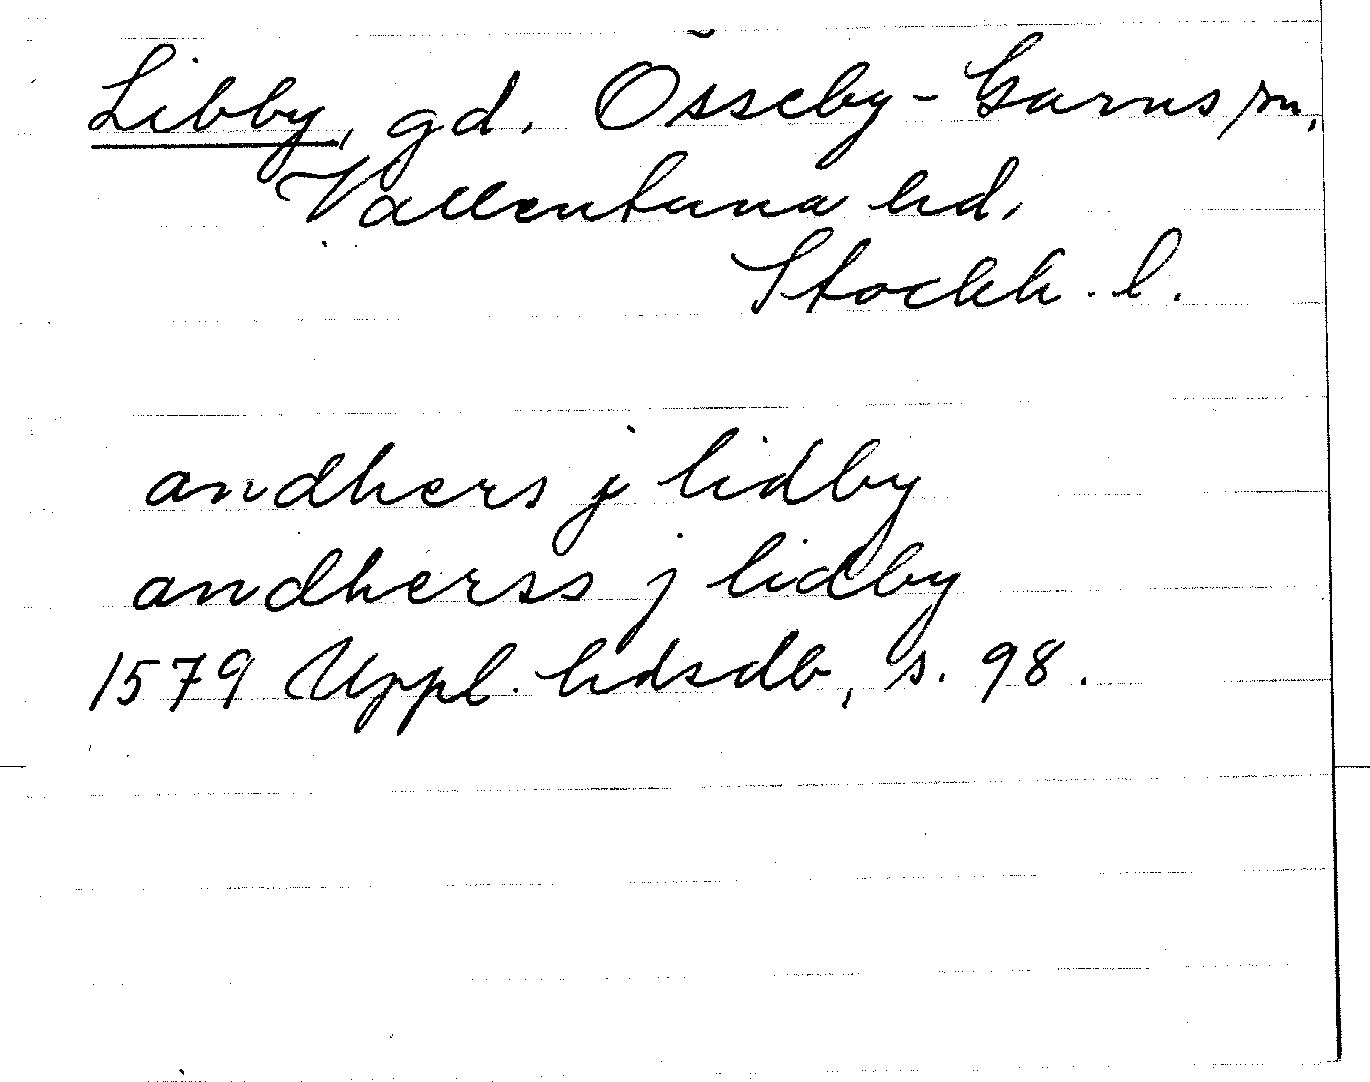 Libby, gd. Össeby-Garns sn,
Vallentuna hd,
Stockh. l.
andhers j lidby
andherss j lidby
1579 Uppl. hdsdb, s. 98.